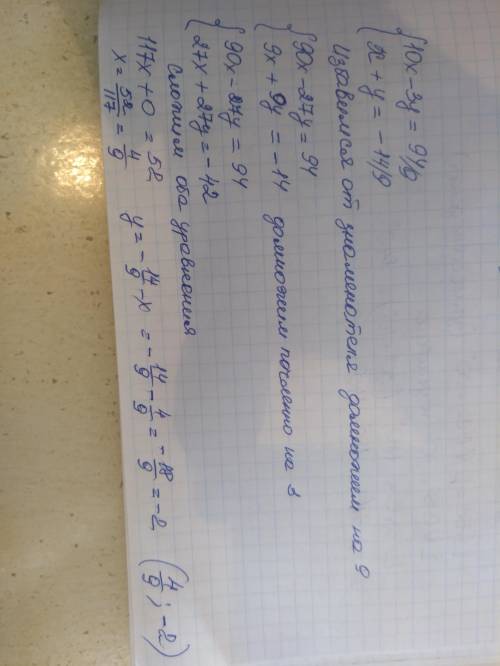 {10x - 3y = 94/9
{x + y = -14/9
Избавимся от знаменателя домножим на 9
{90x - 27y = 94
{9x + 9y = -14 домножим почленно на 3
{90x - 27y = 94
{27x + 27y = -42
Сложим оба уравнения
117x + 0 = 52 y = -14/9 - x = -14/9 - 4/9 = -18/9 = -2 (4/9; -2)
x = 52/117 = 4/9